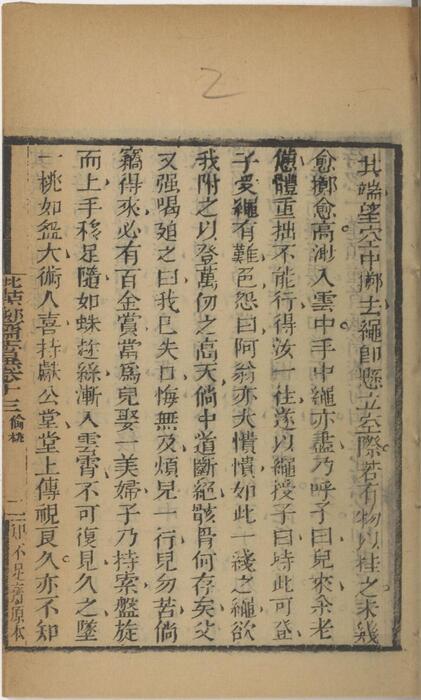 其端望空中擲去繩即懸立空際若有物以挂之未幾
愈擲愈高渺入雲中手中繩亦盡乃呼子曰兒來余老
憊體重拙不能行得汝一往遂以繩授子曰持此可登
子受繩有難色怨曰阿翁亦大憒憒如此一綫之繩欲
我附之以登萬仞之高天倘中道斷絕骸骨何存矣父
又强嗚𢭏之曰我已失口悔無及煩兒一行兒勿苦倘
竊得來必有百金賞當爲兒娶一美婦子乃持索盤旋
而上手移足隨如蛛趁絲漸入雲霄不可復見久之墜
一桃如盌大術人喜持獻公堂堂上傳視良久亦不知
卷十三 偷桃
二 知不足齋原本
2